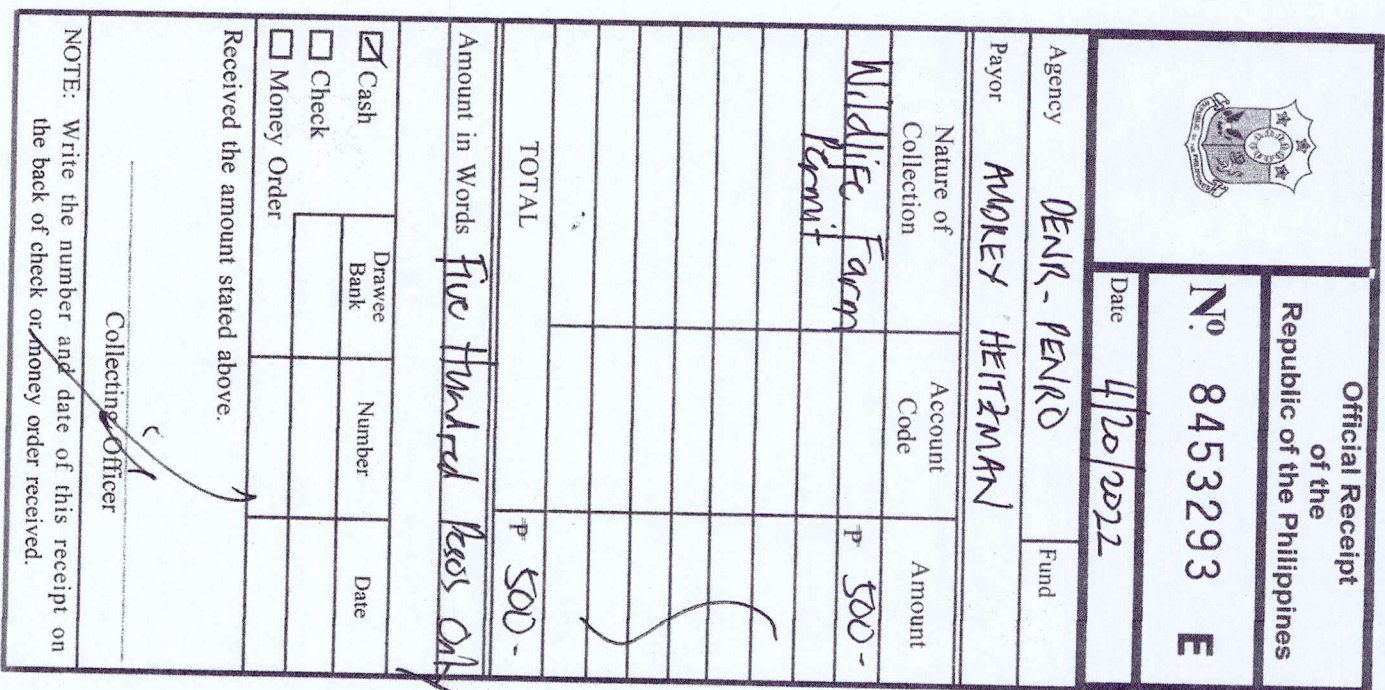 Official Receipt
of the
Republic of the Philippines
Nº 8453293 E
Date 4/20/2022
Agency DENR-PENRO
Fund
Payor AUDREY HEITZMAN
Nature of Collection
Account Code
Amount
Wildlife Farm ₱ 500-
Permit
TOTAL ₱ 500-
Amount in Words Five Hundred Pesos Only
☑ Cash
☐ Check
☐ Money Order
Drawee Bank
Number
Date
Received the amount stated above.
Collecting Officer
NOTE: Write the number and date of this receipt on
the back of check or money order received.